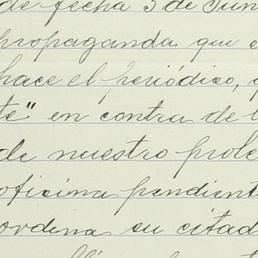 de fecha 3 de Jun
propaganda que e
hace el periódico,
te" en contra del
de nuestro prole
oficina pendient
ordena su citad